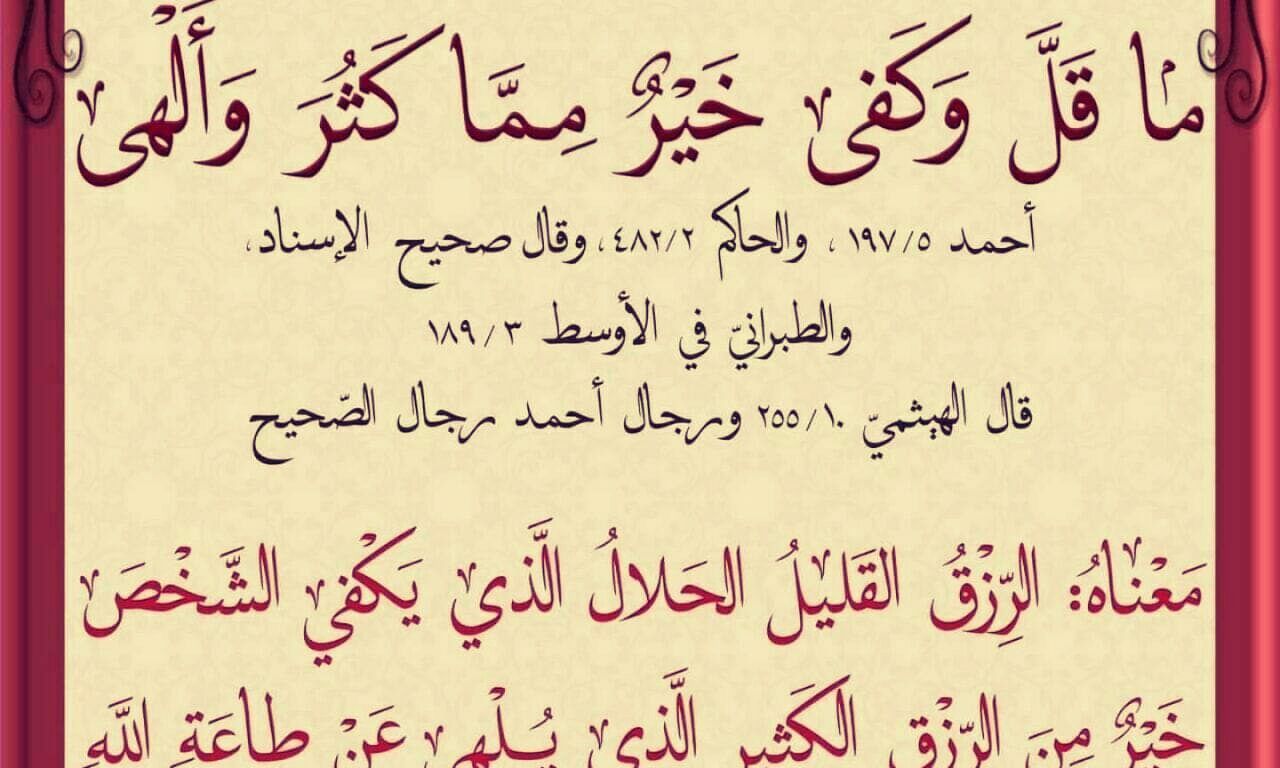 مَا قَلَّ وَكَفَى خَيْرٌ مِمَّا كَثُرَ وَأَلْهَى
أحمد ١٩٧/٥ ، والحاكم ٤٨٢/٢، وقال صحيح الإسناد،
والطبرانيّ في الأوسط ١٨٩/٣
قال الهيثميّ ٢٥٥/١٠ ورجال أحمد رجال الصّحيح
مَعْنَاهُ: الرِّزْقُ القَلِيلُ الحَلالُ الَّذي يَكْفِي الشَّخْصَ
خَيْرٌ مِنَ الرِّزْقِ الكَثيرِ الَّذي يُلْهي عَنْ طاعَةِ اللَّهِ